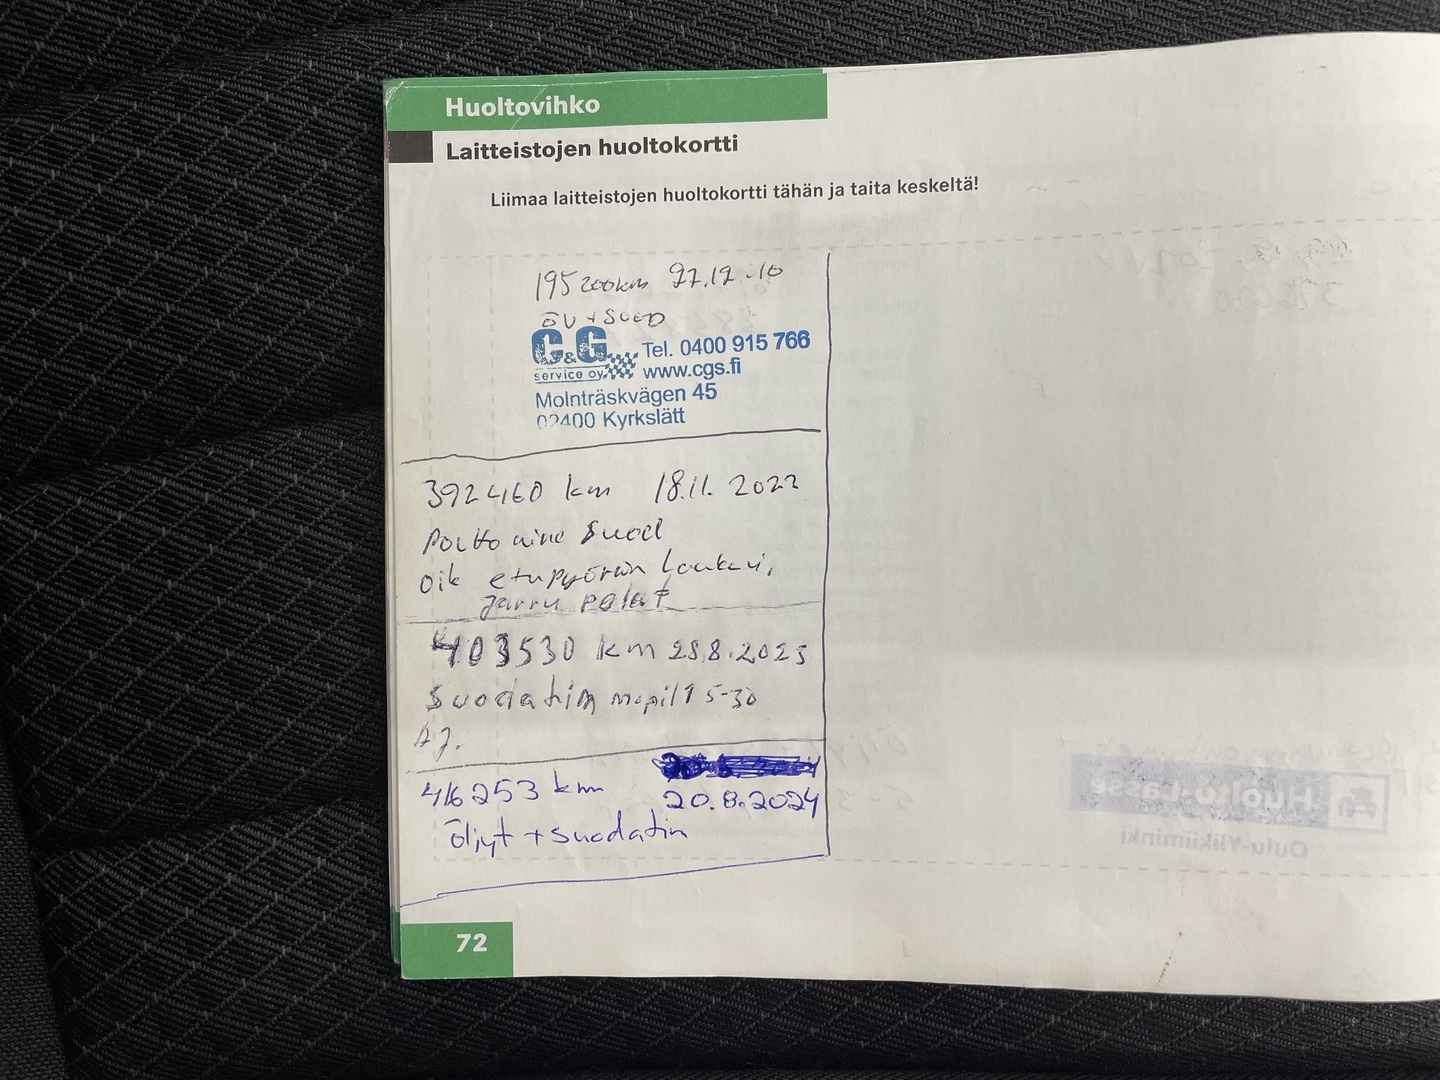 Huoltovihko
Laitteistojen huoltokortti
Liimaa laitteistojen huoltokortti tähän ja taita keskeltä!
195 200km 27.12.10
ÖV + SUOD
C&G Tel. 0400 915 766
service oy www.cgs.fi
Molnträskvägen 45
02400 Kyrkslätt
392460 km 18.11. 2022
Polttoaine Suod
Oik etupyörän Laakeri,
Jarru palat
403530 km 28.8.2023
Suodatin mopil1 5-30
416253 km
20.8.2024
öljyt + suodatin
72
Huolto-Lasse
Oulu-Ylikiiminki